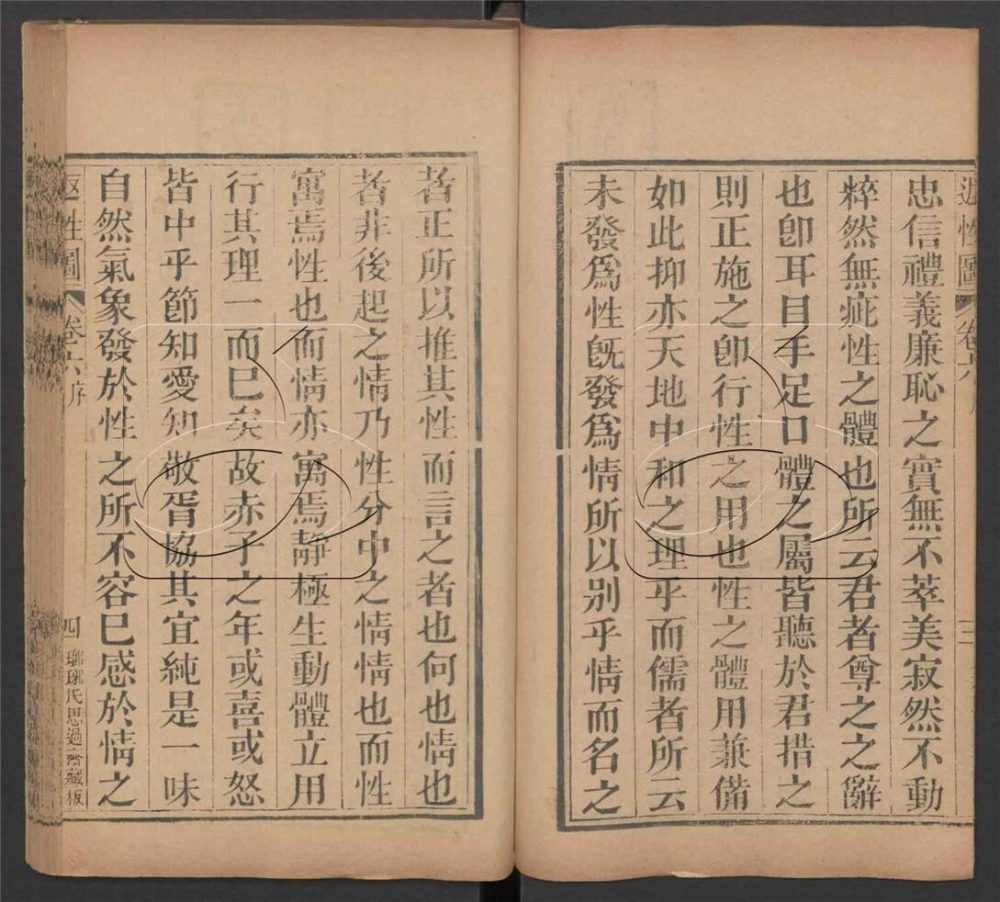 返性圖 卷六 序 三
忠信禮義廉恥之實無不萃美寂然不動
粹然無疵性之體也所云君者尊之之辭
也卽耳目手足口體之屬皆聽於君措之
則正施之卽行性之用也性之體用兼備
如此抑亦天地中和之理乎而儒者所云
未發爲性旣發爲情所以别乎情而名之
者正所以推其性而言之者也何也情也
者非後起之情乃性分中之情情也而性
寓焉性也而情亦寓焉靜極生動體立用
行其理一而已矣故赤子之年或喜或怒
皆中乎節知愛知敬胥協其宜純是一味
自然氣象發於性之所不容已感於情之
返性圖 卷六 序 四 瑯琊氏思過齋藏板